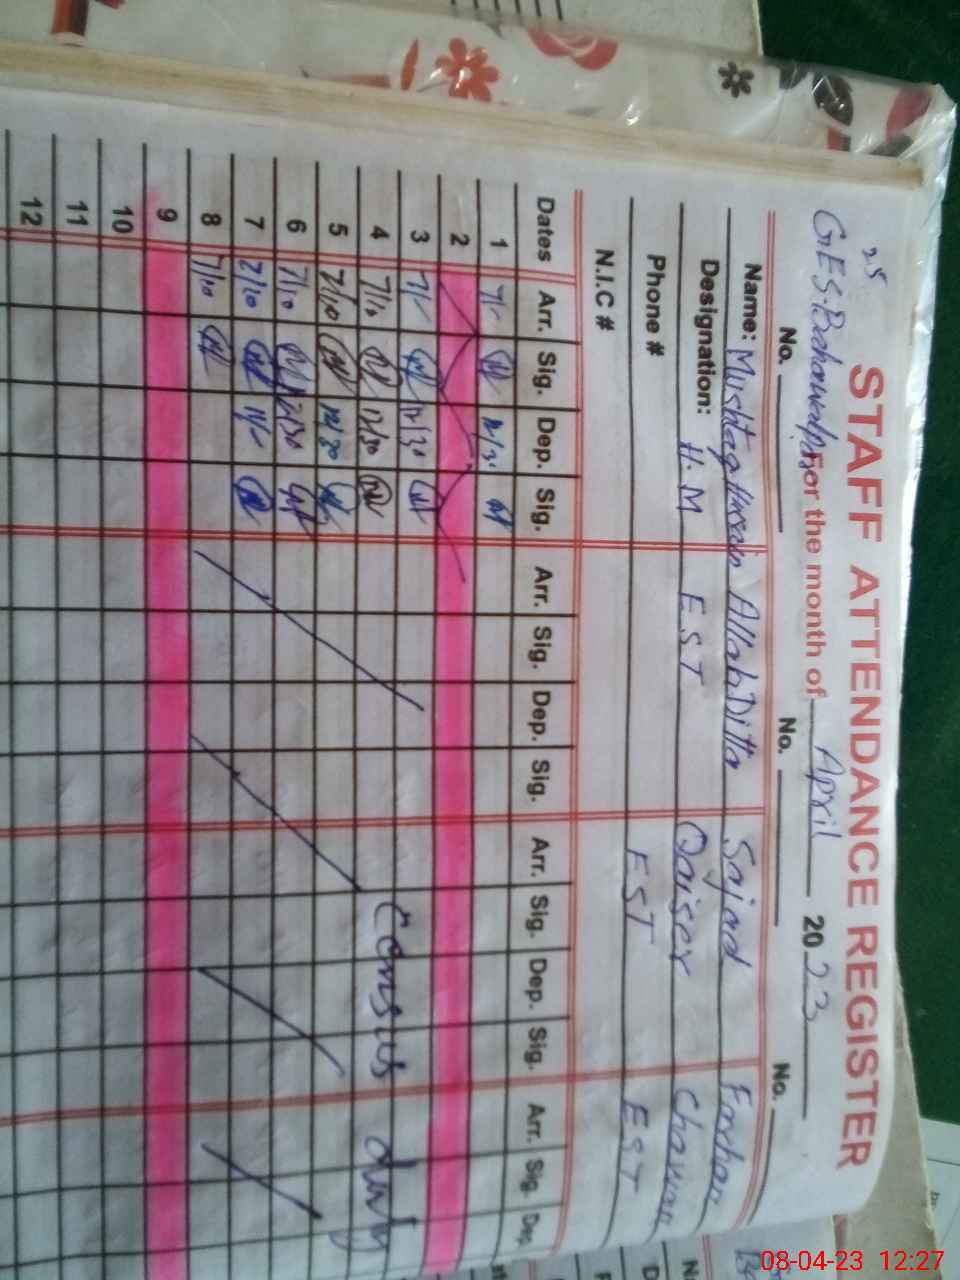 STAFF ATTENDANCE REGISTER
25
G.E.S. For the month of April 2023
No. No. No.
Name: Mushtaq Hussain Allah Ditta Sajad Farhan
Designation: H.M EST Qaiser Chawan
Phone # EST EST
N.I.C #
Dates Arr. Sig. Dep. Sig. Arr. Sig. Dep. Sig. Arr. Sig. Dep. Sig. Arr. Sig. Dep.
1 7/-
2
3 7/- 12/30
4 7/10 12/30 Census duty
5 7/10 12/30
6 7/10
7 7/10 11/-
8 7/10
9
10
11
12
08-04-23 12:27